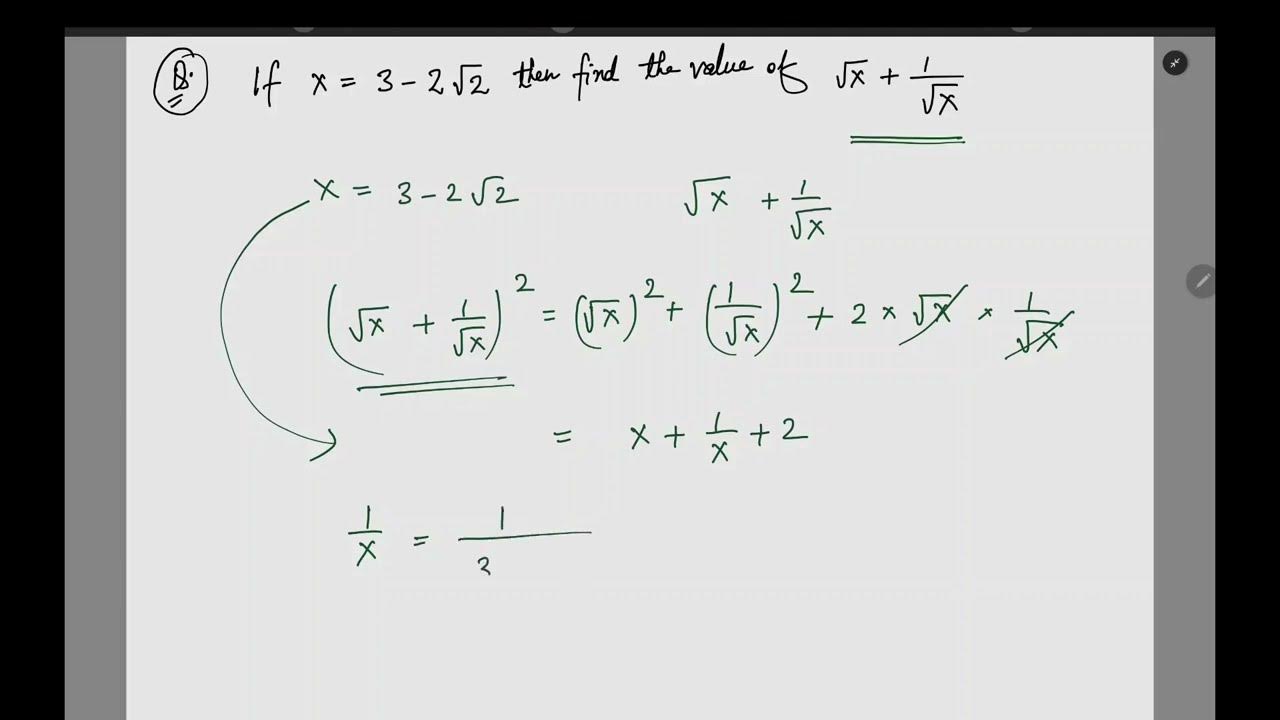 Q. If x = 3 - 2√2 then find the value of √x + 1/√x
x = 3 - 2√2 √x + 1/√x
(√x + 1/√x)² = (√x)² + (1/√x)² + 2 × √x × 1/√x
= x + 1/x + 2
1/x = 1/3